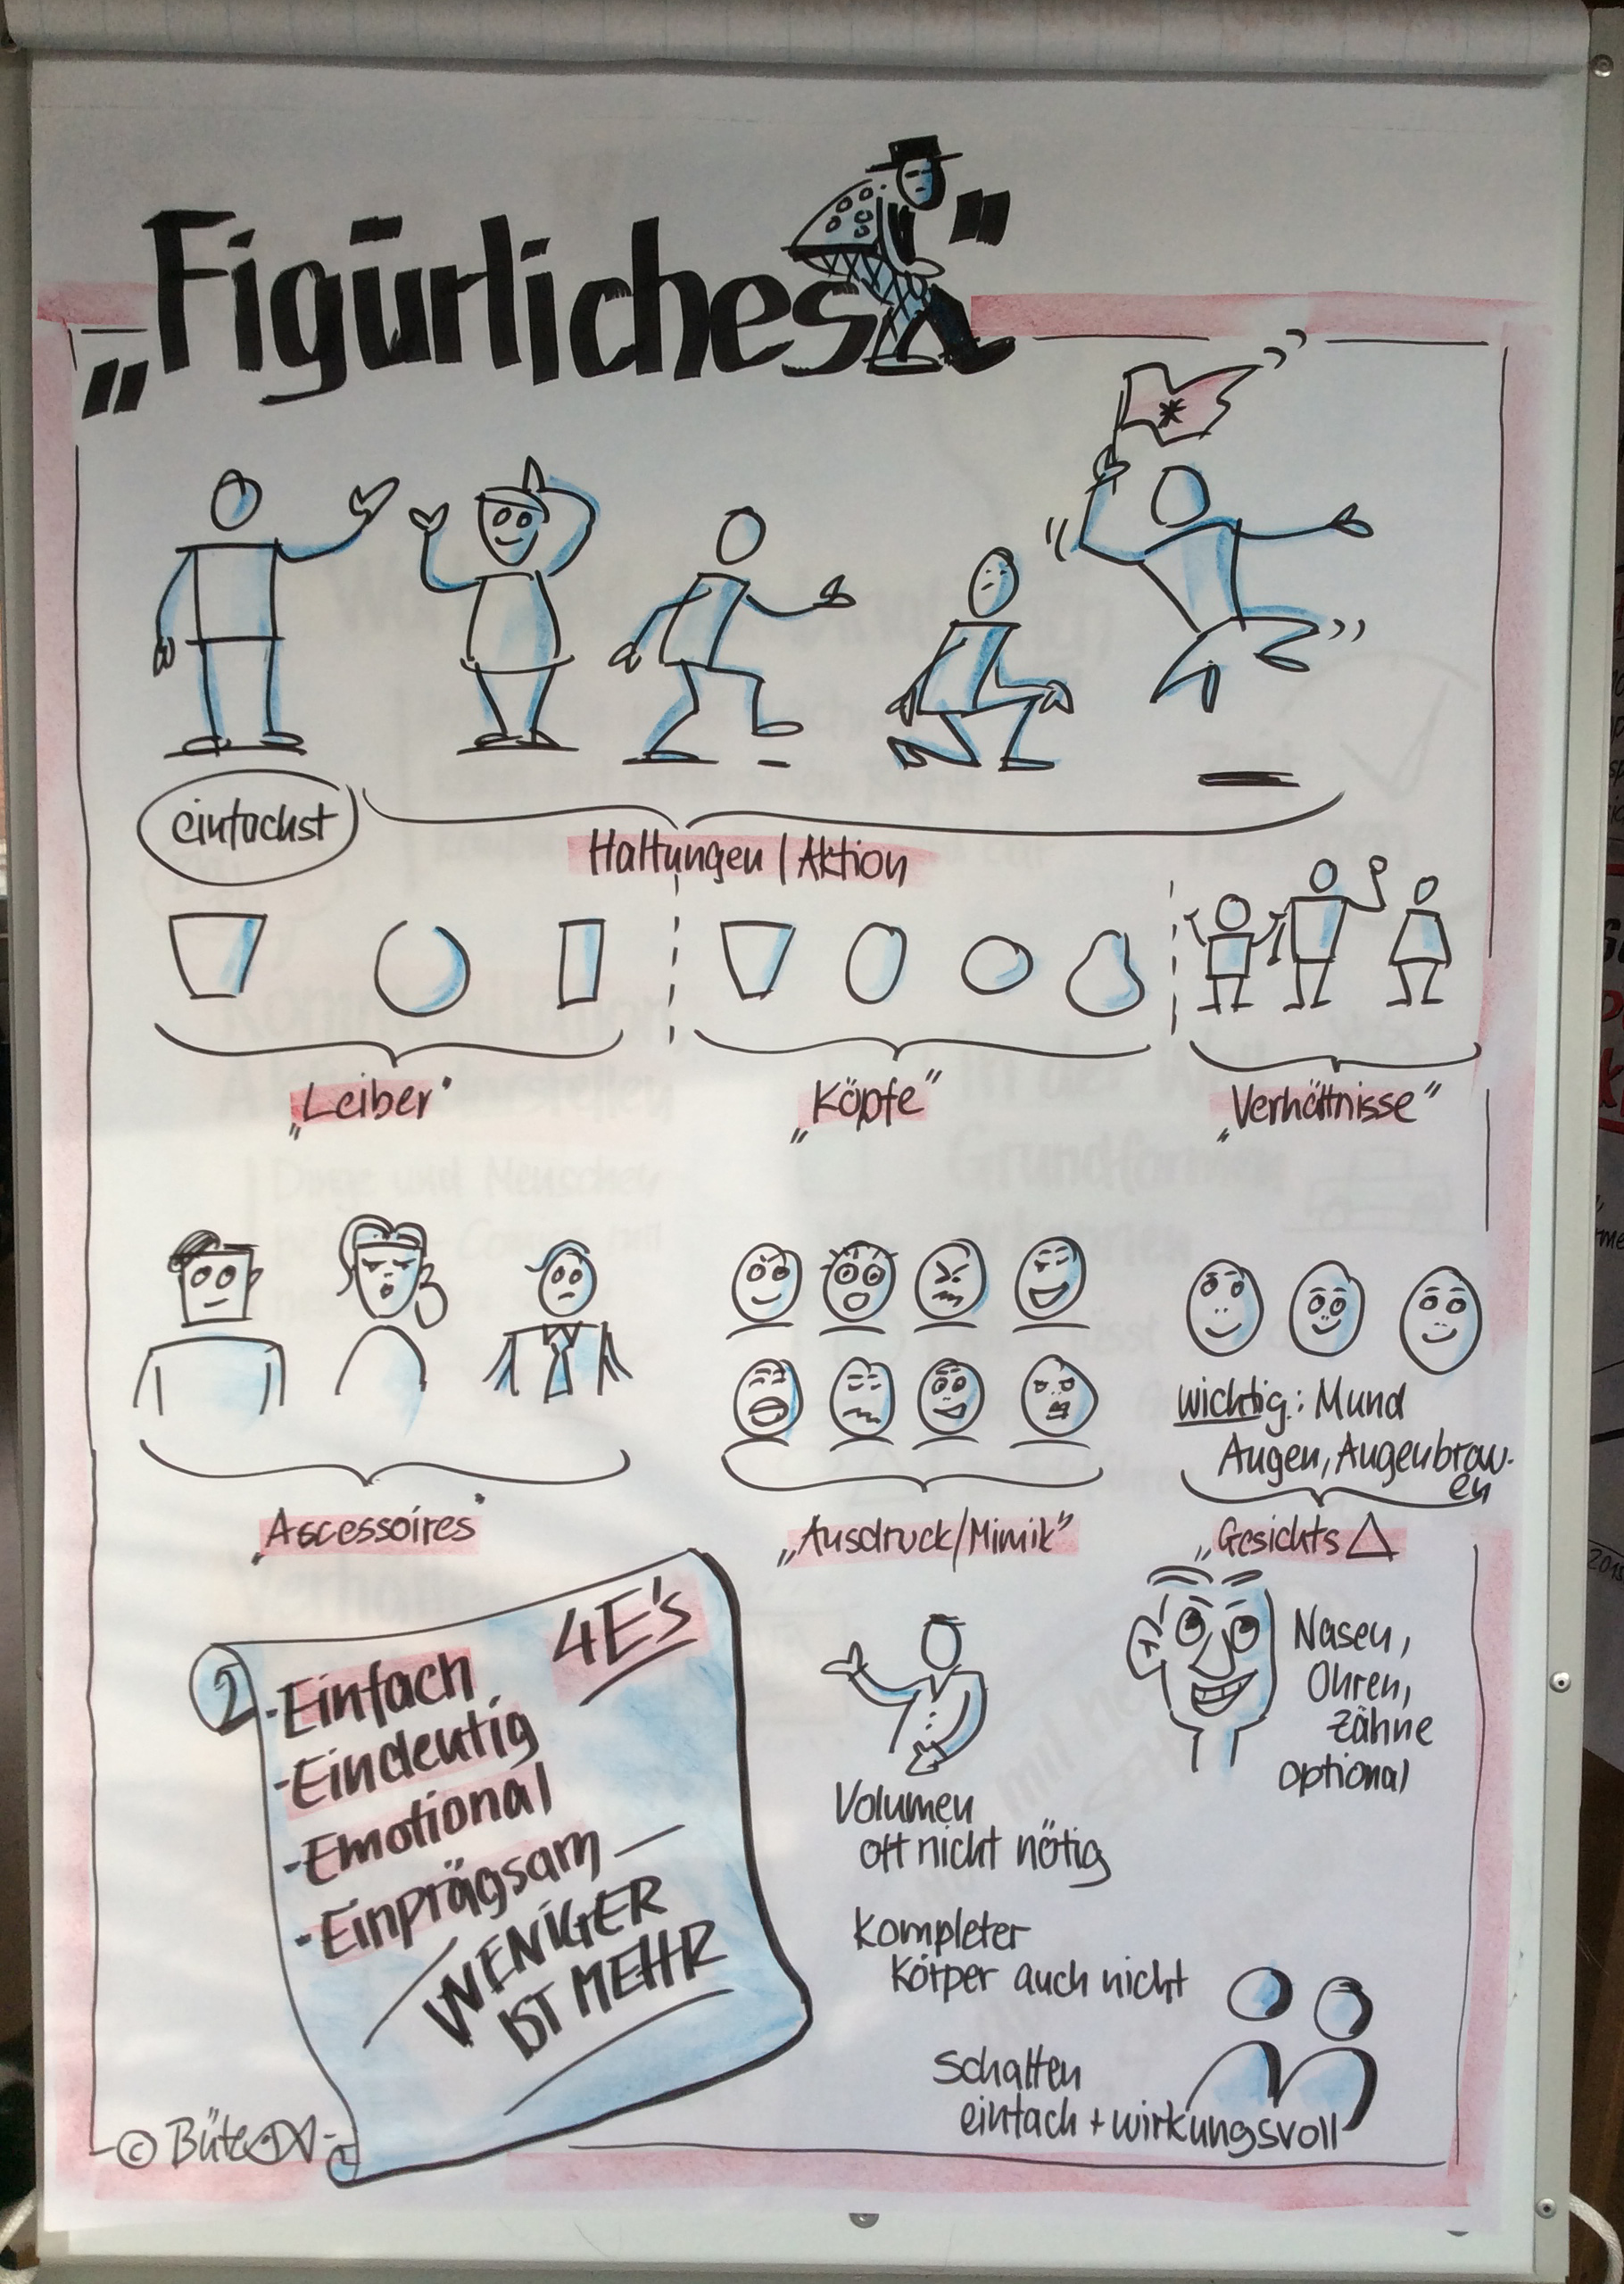 „Figürliches"
einfachst
Haltungen / Aktion
„Leiber"
„Köpfe"
„Verhältnisse"
wichtig: Mund
Augen, Augenbrau-
en
„Accessoires"
„Ausdruck/Mimik"
„Gesichts △
4E's
-Einfach
-Eindeutig
-Emotional
-Einprägsam
WENIGER
IST MEHR
Nasen,
Ohren,
Zähne
optional
Volumen
oft nicht nötig
Kompleter
Körper auch nicht
Schatten
einfach + wirkungsvoll
©